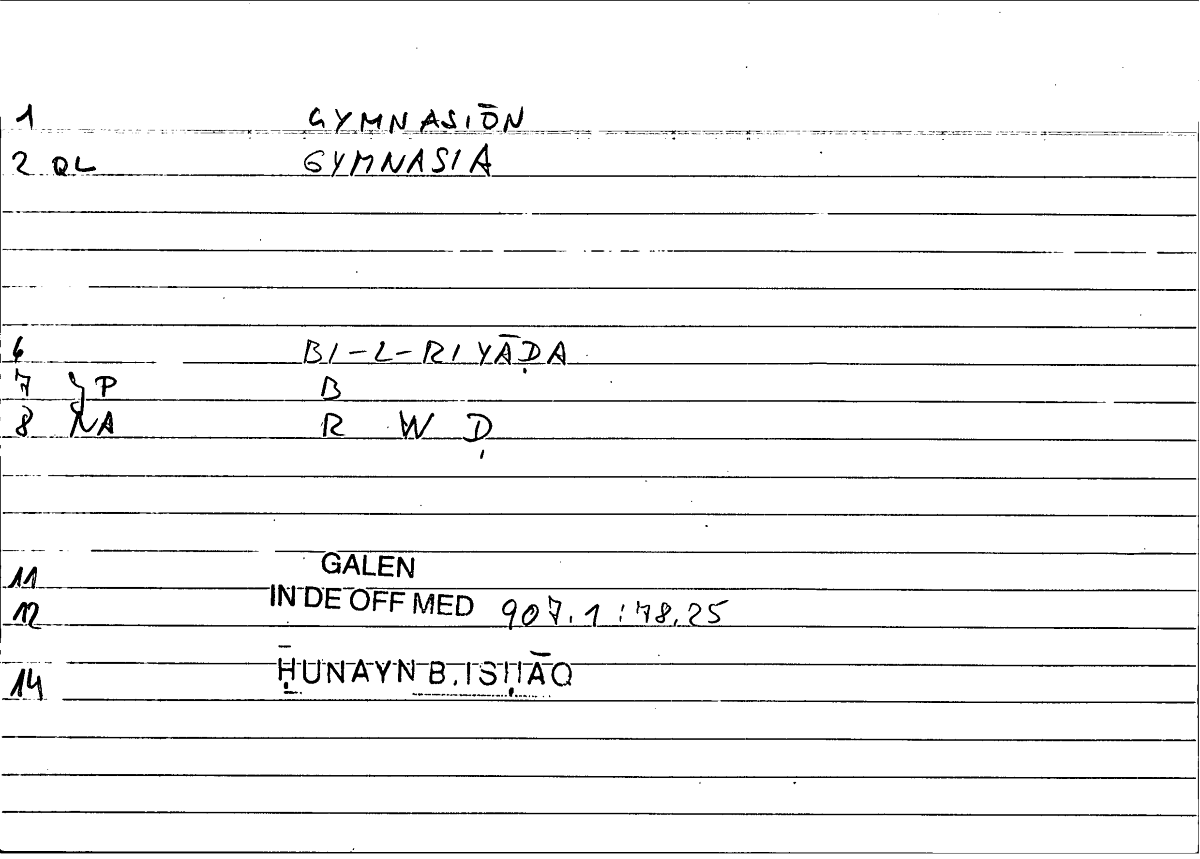 1 GYMNASIŌN
2 QL GYMNASIA
6 BI-L-RIYĀḌA
7 P B
8 NA R W Ḍ
11 GALEN
12 IN DE OFF MED 907.1:78.25
14 ḤUNAYN B. ISḤĀQ